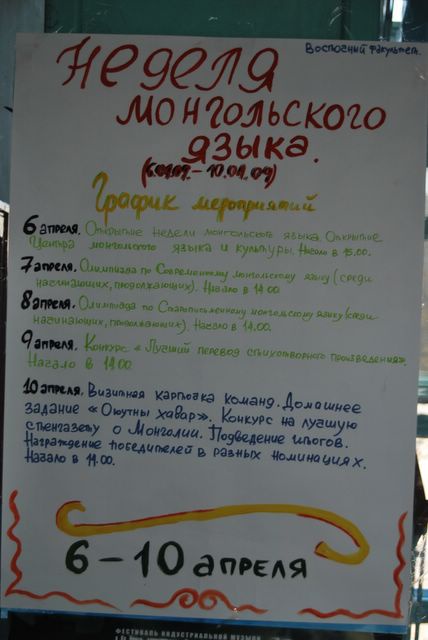 Восточный факультет.
Неделя
монгольского
языка.
(6.04.09. – 10.04.09)
График мероприятий
6 апреля. Открытие недели монгольского языка. Открытие
Центра монгольского языка и культуры. Начало в 15.00.
7 апреля. Олимпиада по Современному монгольскому языку (среди
начинающих, продолжающих). Начало в 14.00
8 апреля. Олимпиада по Старописьменному монгольскому языку (среди
начинающих, продолжающих). Начало в 14.00.
9 апреля. Конкурс «Лучший перевод стихотворного произведения».
Начало в 14.00
10 апреля. Визитная карточка команд. Домашнее
задание «Оюутны хавар». Конкурс на лучшую
стенгазету о Монголии. Подведение итогов.
Награждение победителей в разных номинациях.
Начало в 14.00.
6 – 10 апреля
ФЕСТИВАЛЬ ИНДУСТРИАЛЬНОЙ МУЗЫКИ